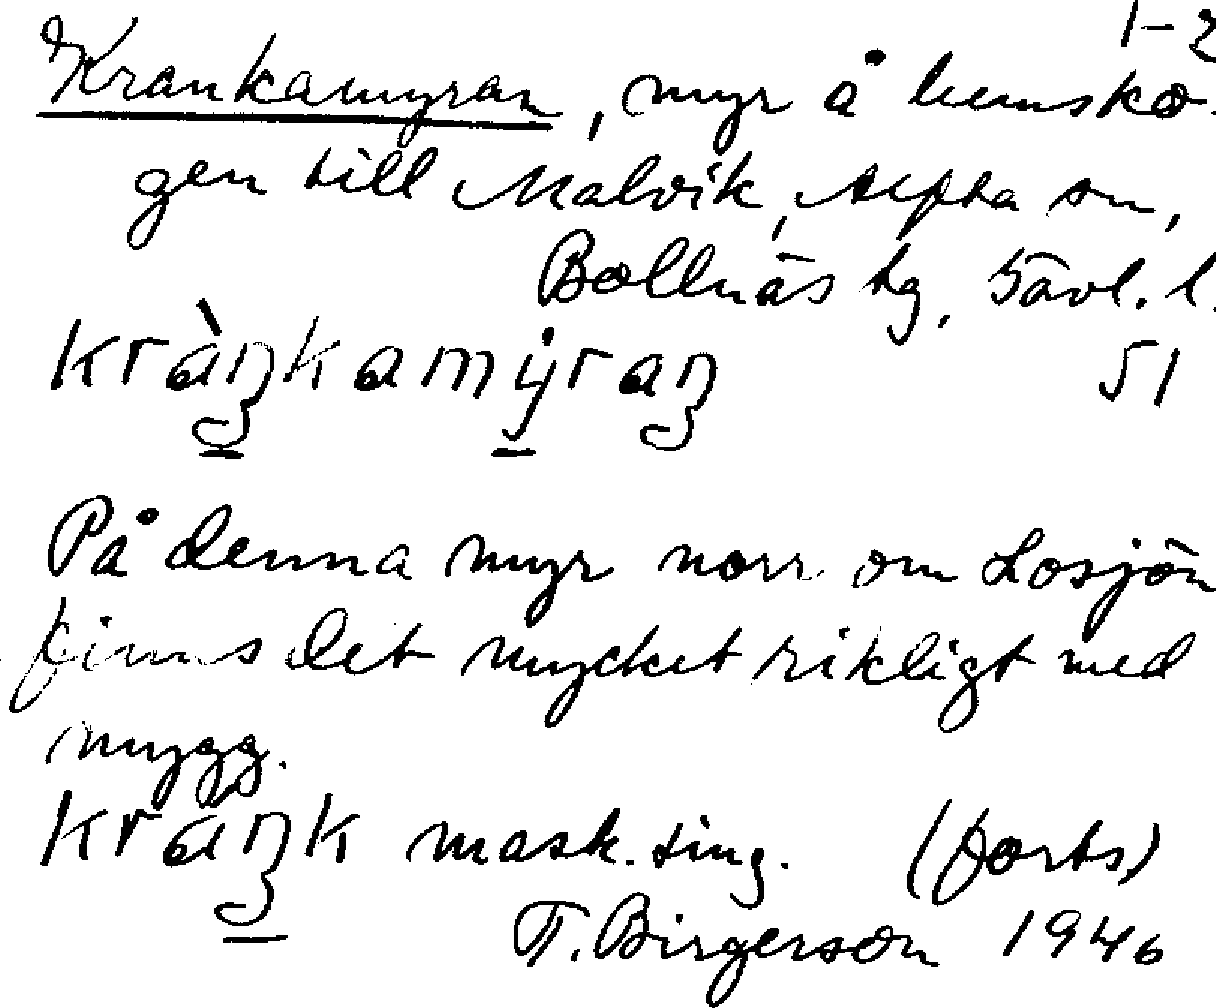 1-2
Krankamyran, myr å hemsko-
gen till Malvik, Alfta sn,
Bollnäs tg, Gävl. l.
kràŋkamẏraŋ 51
På denna myr norr om Losjön
finns det mycket rikligt med
mygg.
kraŋk mask. sing. (forts)
T. Birgerson 1946